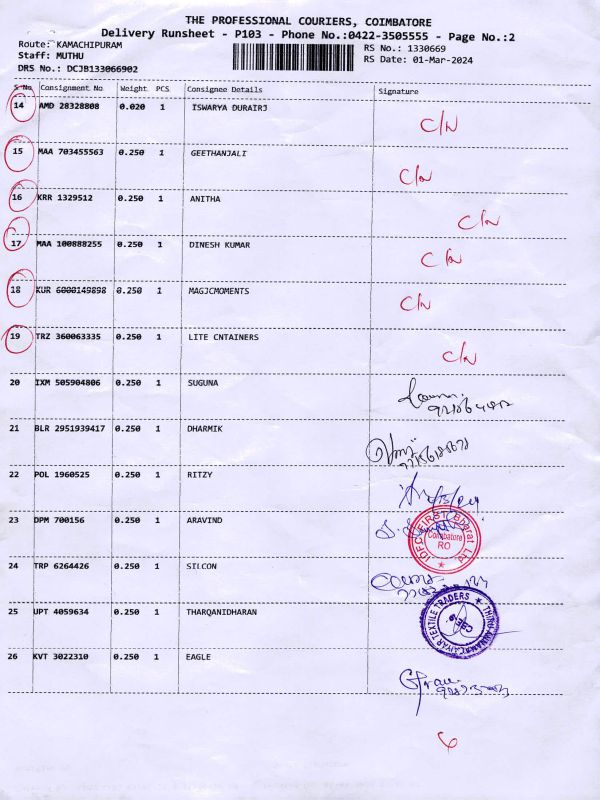 THE PROFESSIONAL COURIERS, COIMBATORE
Delivery Runsheet - P103 - Phone No.:0422-3505555 - Page No.:2
Route: KAMACHIPURAM
Staff: MUTHU
DRS No.: DCJB133066902
RS No.: 1330669
RS Date: 01-Mar-2024
S No Consignment No Weight PCS Consignee Details Signature
14 AMD 28328808 0.020 1 ISWARYA DURAIRJ C/N
15 MAA 703455563 0.250 1 GEETHANJALI C/N
16 KRR 1329512 0.250 1 ANITHA C/N
17 MAA 100888255 0.250 1 DINESH KUMAR C/N
18 KUR 6000149898 0.250 1 MAGJCMOMENTS C/N
19 TRZ 360063335 0.250 1 LITE CNTAINERS C/N
20 IXM 505904806 0.250 1 SUGUNA
21 BLR 2951939417 0.250 1 DHARMIK
22 POL 1960525 0.250 1 RITZY
23 DPM 700156 0.250 1 ARAVIND
IDFC FIRST Bharat Ltd
Coimbatore
RO
24 TRP 6264426 0.250 1 SILCON
25 UPT 4059634 0.250 1 THARQANIDHARAN
TEXTILE TRADERS
CBE-9.
26 KVT 3022310 0.250 1 EAGLE